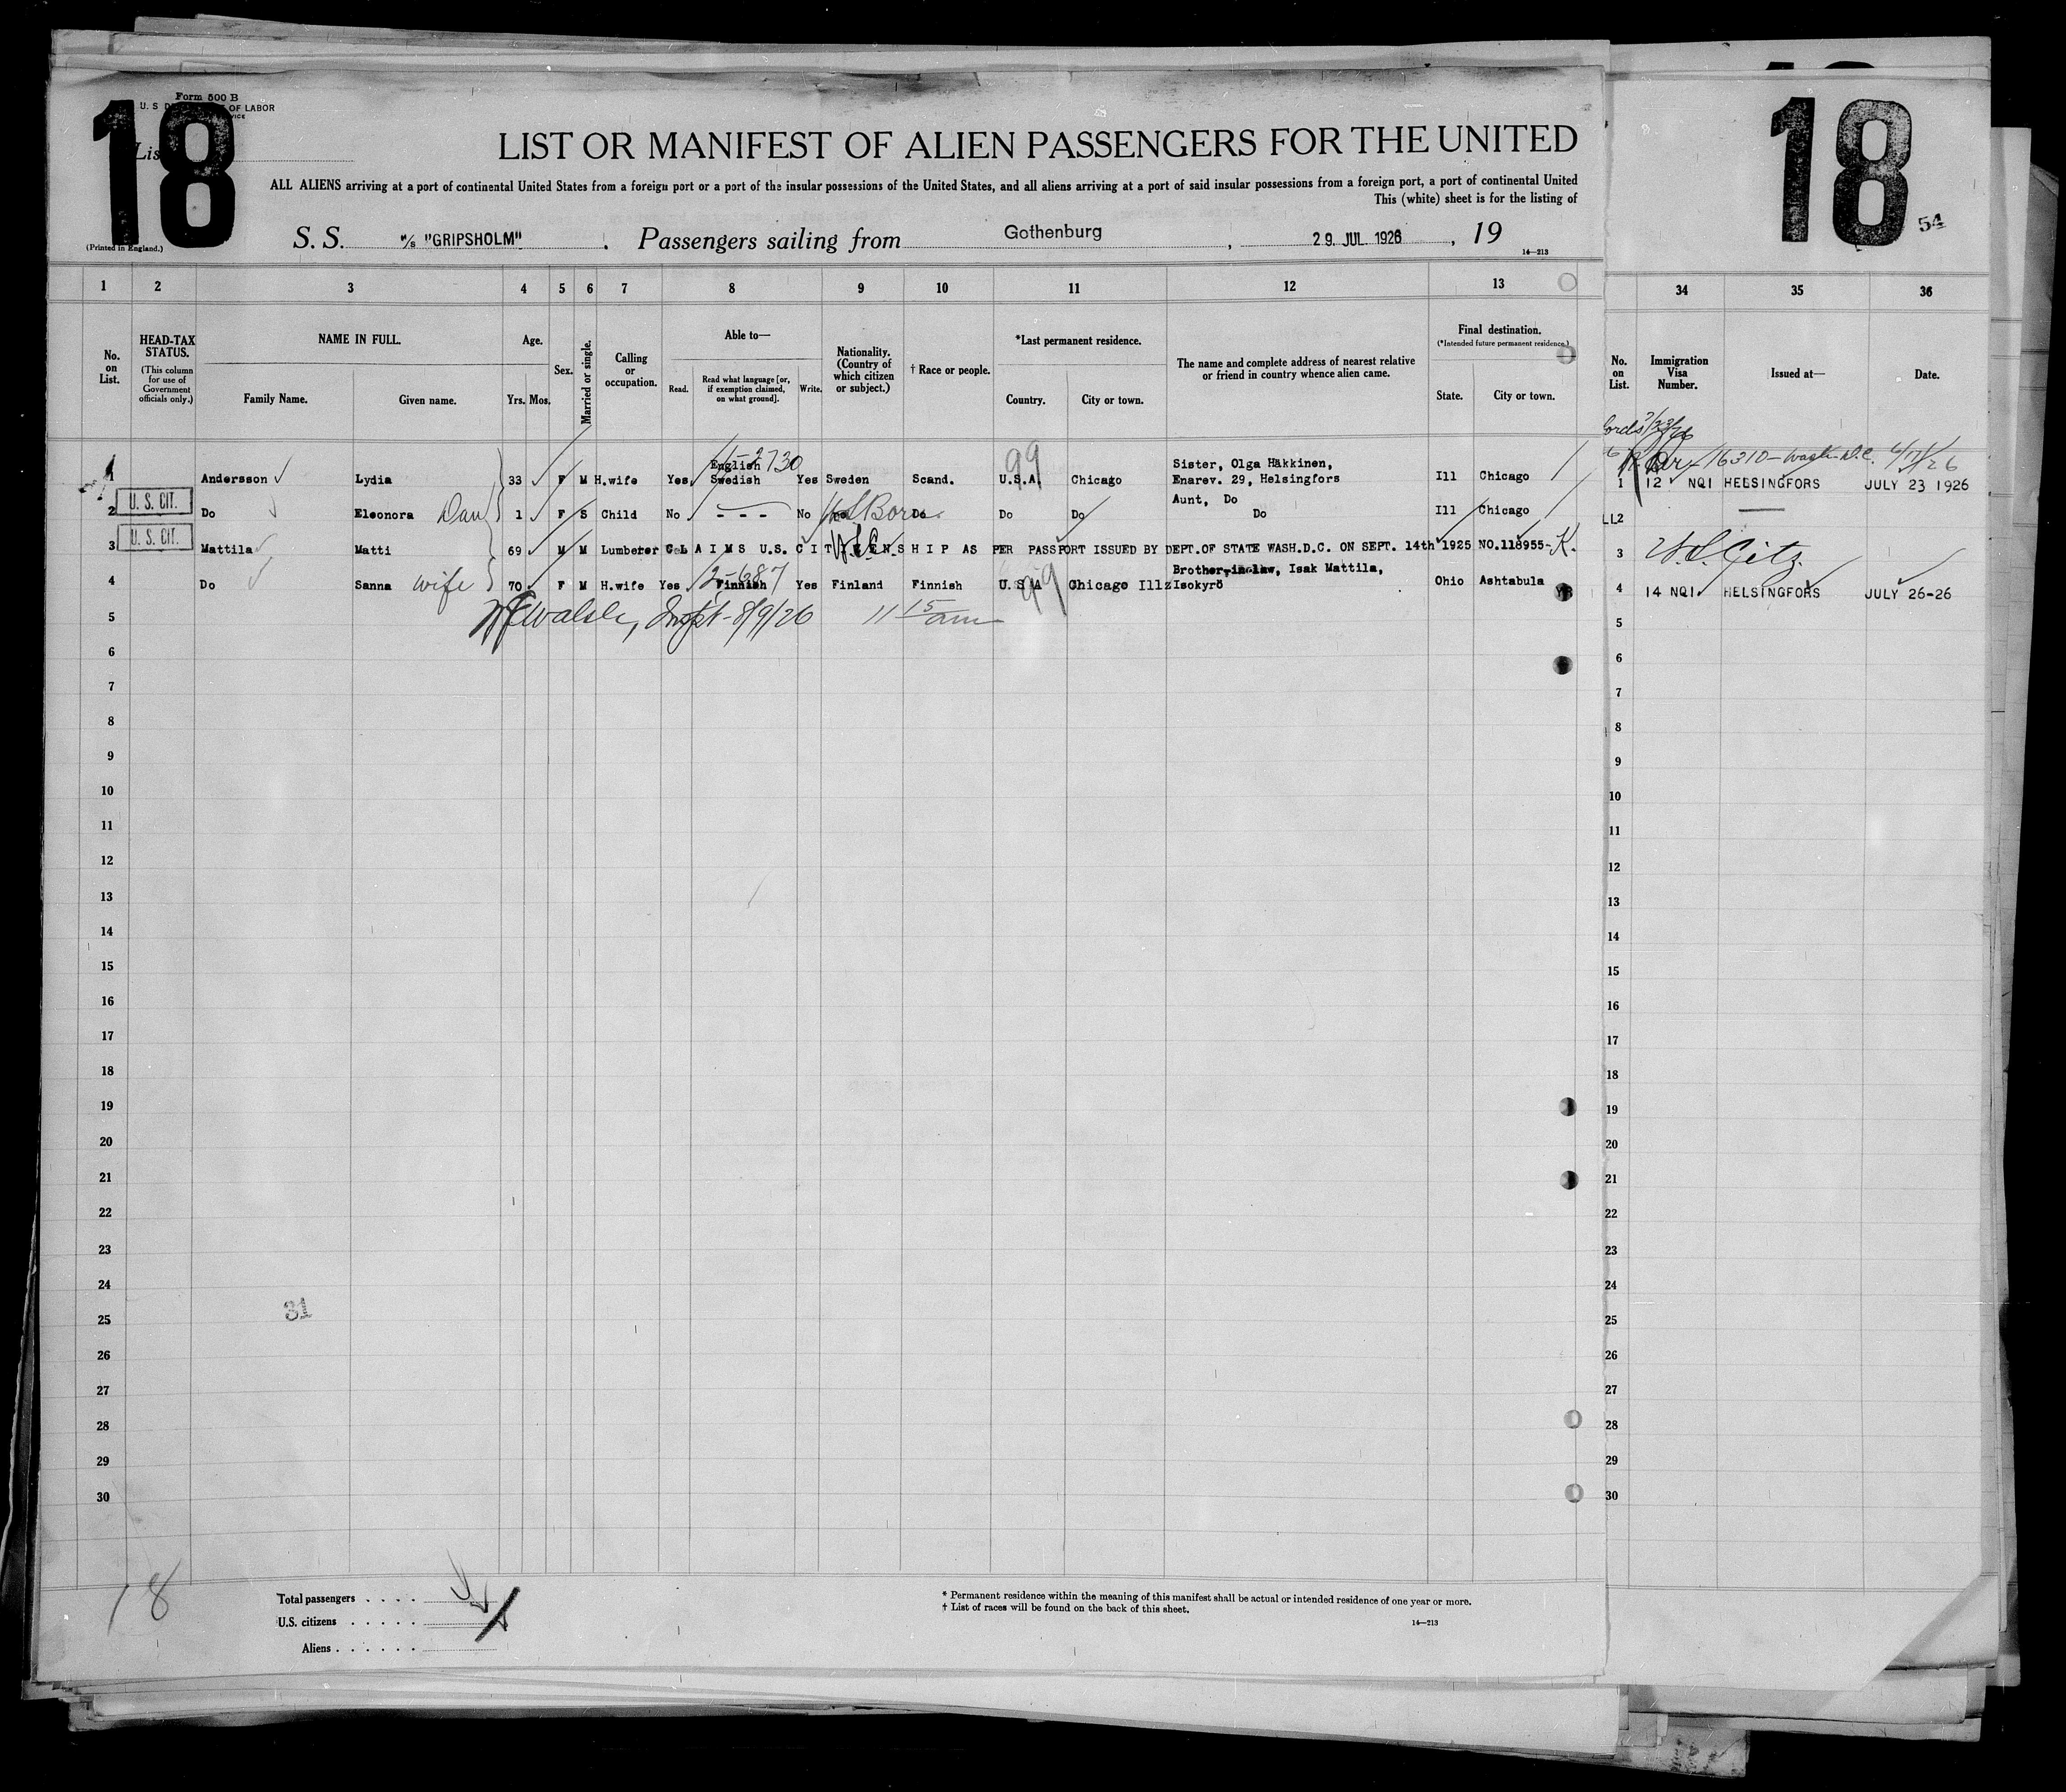 Form 500 B
U. S. D OF LABOR
VICE
18
Lis
(Printed in England.)
LIST OR MANIFEST OF ALIEN PASSENGERS FOR THE UNITED
ALL ALIENS arriving at a port of continental United States from a foreign port or a port of the insular possessions of the United States, and all aliens arriving at a port of said insular possessions from a foreign port, a port of continental United
This (white) sheet is for the listing of
S. S. M/s "GRIPSHOLM" . Passengers sailing from Gothenburg , 29. JUL. 1926 , 19
14—213
18
54
1 2 3 4 5 6 7 8 9 10 11 12 13
34 35 36
No. on List.
HEAD-TAX STATUS.
(This column for use of Government officials only.)
NAME IN FULL.
Family Name. Given name.
Age.
Yrs. Mos.
Sex.
Married or single.
Calling or occupation.
Able to—
Read. Read what language [or, if exemption claimed, on what ground]. Write.
Nationality. (Country of which citizen or subject.)
† Race or people.
*Last permanent residence.
Country. City or town.
The name and complete address of nearest relative or friend in country whence alien came.
Final destination.
(*Intended future permanent residence.)
State. City or town.
No. on List.
Immigration Visa Number.
Issued at—
Date.
7/23/26
16310 - Wash. D.C. 6/17/26
1 Andersson Lydia 33 F M H.wife Yes English Swedish Yes Sweden Scand. U.S.A. Chicago Sister, Olga Häkkinen, Enarev. 29, Helsingfors Ill Chicago
2730
99
1 12 NQI HELSINGFORS JULY 23 1926
U. S. CIT.
2 Do Eleonora Dau 1 F S Child No - - - No US Born Do Do Do Aunt, Do Do Ill Chicago
2
U. S. CIT.
3 Mattila Matti 69 M M Lumberer CLAIMS U.S. CITIZENSHIP AS PER PASSPORT ISSUED BY DEPT.OF STATE WASH.D.C. ON SEPT. 14th 1925 NO.118955-K.
USC
3 U.S. Citz.
4 Do Sanna wife 70 F M H.wife Yes Finnish Yes Finland Finnish U.S.A Chicago Illz Brother-in-law, Isak Mattila, Isokyrö Ohio Ashtabula
2-687
99
4 14 NQI HELSINGFORS JULY 26-26
Walsh, Inspt - 8/9/26 11 15 am
5 5
6 6
7 7
8 8
9 9
10 10
11 11
12 12
13 13
14 14
15 15
16 16
17 17
18 18
19 19
20 20
21 21
22 22
23 23
24 24
31
25 25
26 26
27 27
28 28
29 29
30 30
18
Total passengers . . . .
U.S. citizens . . . . .
Aliens . . . . . .
* Permanent residence within the meaning of this manifest shall be actual or intended residence of one year or more.
† List of races will be found on the back of this sheet.
14—213